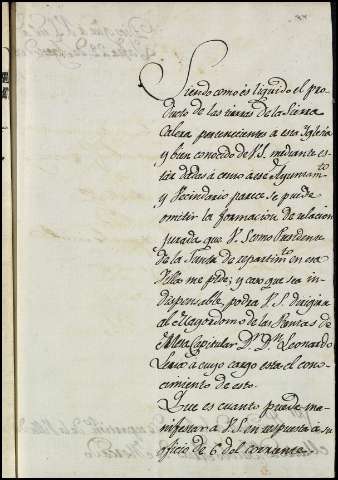 Siendo como es liquido el pro-
ducto de las tierras de la Sierra
Calera pertenecientes a esta Iglesia
y bien conocido de V.S. mediante es-
tar dadas à censo a ese Ayuntamto
y Vecindario parece se puede
omitir la formacion de relacion
jurada que V.S. como Presidente
de la Junta de repartimto en esa
Villa me pide; y caso que sea in-
dispensable, podra V.S. dirigirla
al Mayordomo de las Rentas de
Mesa Capitular Dr. Dn. Leonardo
à cuyo cargo esta el cono-
cimiento de esto.
Que es cuanto puedo ma-
nifestar à V.S. en respuesta à su
oficio de 6 del corriente.